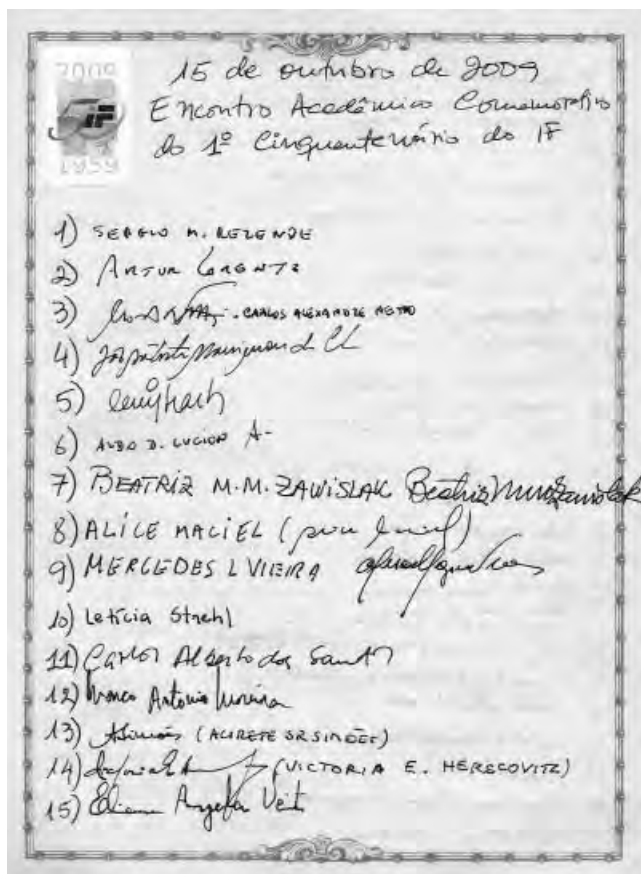 2009
IF
1959
15 de outubro de 2009
Encontro Acadêmico Comemorativo
do 1º Cinquentenário do IF
1) SERGIO M. REZENDE
2) ARTUR LORENTZ
3) CARLOS ALEXANDRE NETTO
4)
5)
6) ALDO B. LUCION A-
7) BEATRIZ M.M. ZAWISLAK Beatriz Muro Zawislak
8) ALICE MACIEL (
9) MERCEDES L VIEIRA
10) Letícia Strehl
11) Carlos Alberto dos Santos
12) Marco Antonio Moreira
13) (ALIRETE SRSIMÕES)
14) (VICTORIA E. HERSCOVITZ)
15) Eliane Angela Veit